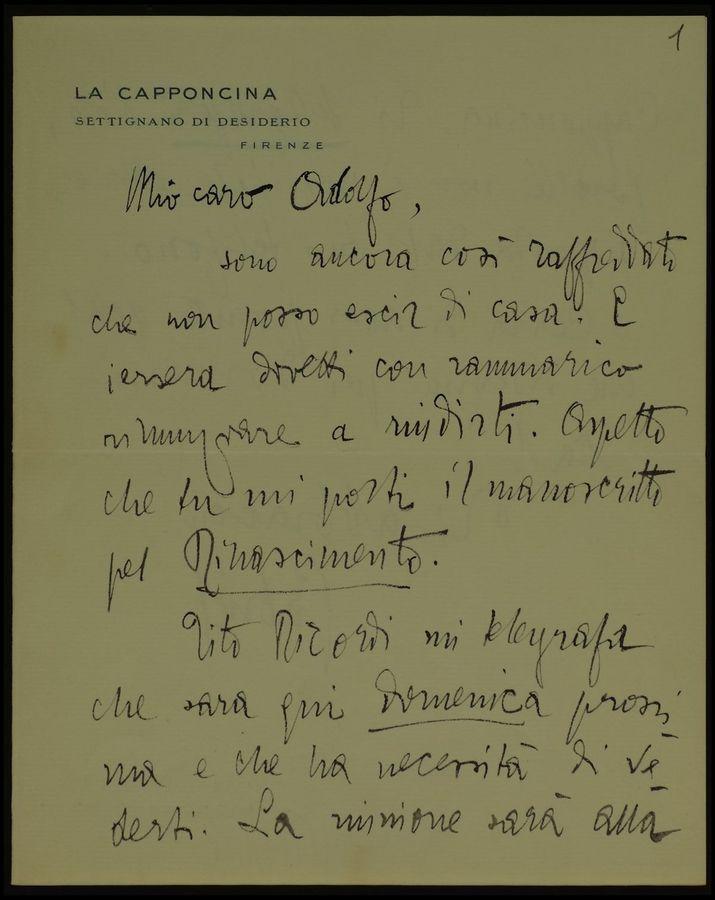 1
LA CAPPONCINA
SETTIGNANO DI DESIDERIO
FIRENZE
Mio caro Adolfo,
sono ancora così raffreddato
che non posso escir di casa. E
iersera dovetti con rammarico
rinunziare a rivederti. Aspetto
che tu mi porti il manoscritto
pel Rinascimento.
Tito Ricordi mi telegrafa
che sarà qui domenica prossi
ma e che ha necessità di ve
derti. La riunione sarà alla